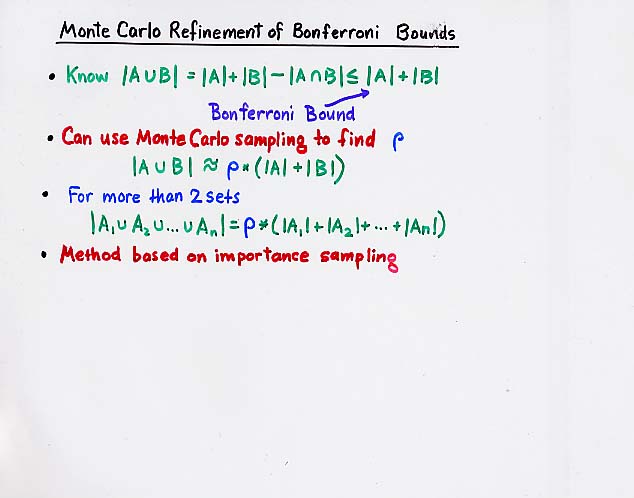 Monte Carlo Refinement of Bonferroni Bounds
• Know |A∪B| = |A|+|B|-|A∩B| ≤ |A|+|B|
Bonferroni Bound
• Can use Monte Carlo sampling to find ρ
|A∪B| ≈ ρ*(|A|+|B|)
• For more than 2 sets
|A₁∪A₂∪...∪Aₙ| = ρ*(|A₁|+|A₂|+...+|Aₙ|)
• Method based on importance sampling